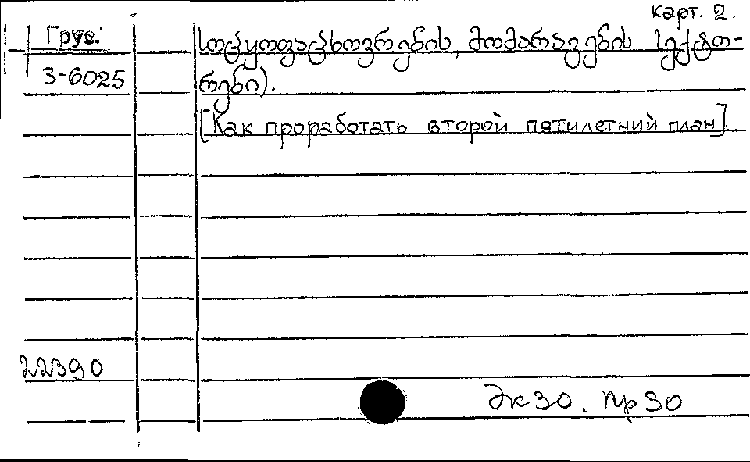 Карт. 2.
Груз.
3-6025
სექტო-
რები).
[Как проработать второй пятилетний план]
22390
Эк30. Пр30